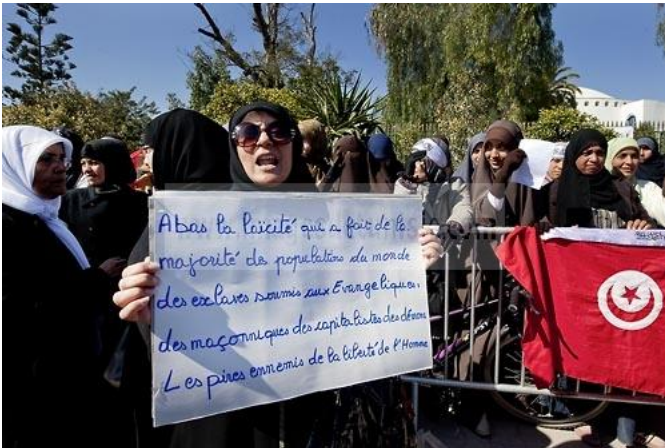 Abas la laïcité qui a fait de la
majorité des populations du monde
des esclaves soumis aux Evangeliques,
des maçonniques des capitalistes des démons
Les pires ennemis de la liberté de l'Homme